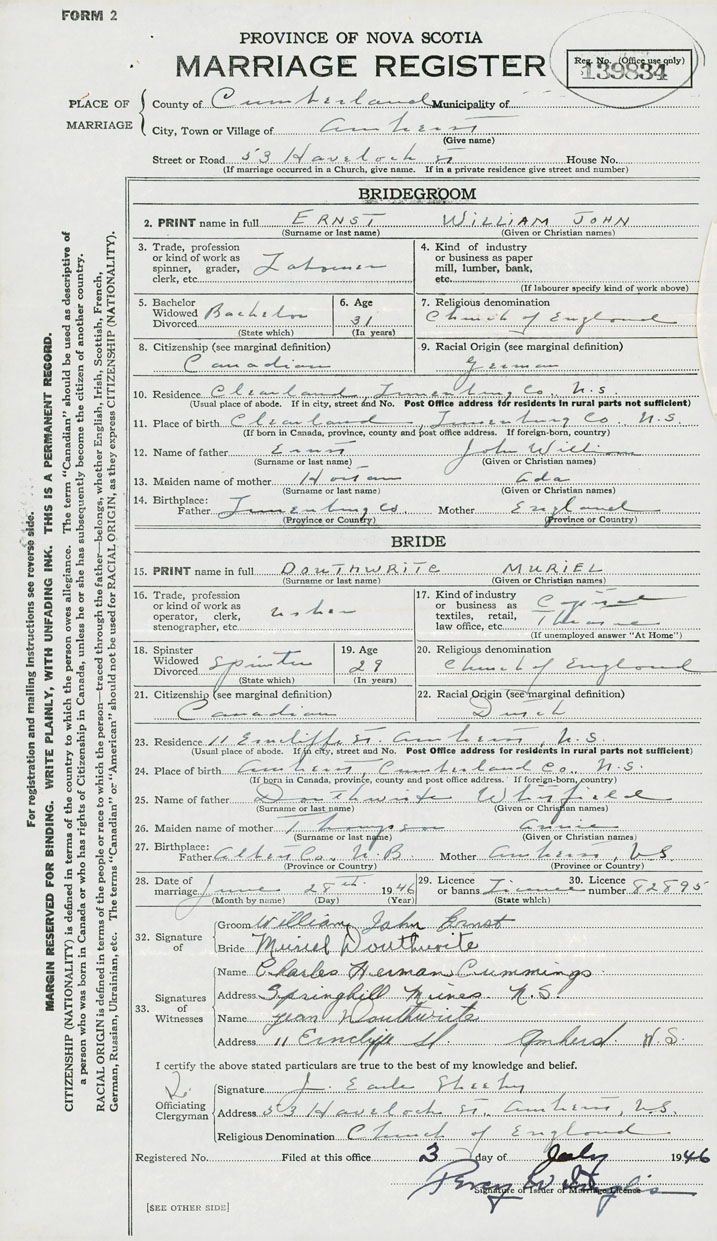 FORM 2
PROVINCE OF NOVA SCOTIA
MARRIAGE REGISTER
Reg. No. (Office use only)
139834
PLACE OF MARRIAGE
County of Cumberland Municipality of
City, Town or Village of Amherst
(Give name)
Street or Road 53 Havelock St House No.
(If marriage occurred in a Church, give name. If in a private residence give street and number)
BRIDEGROOM
2. PRINT name in full ERNST WILLIAM JOHN
(Surname or last name) (Given or Christian names)
3. Trade, profession or kind of work as spinner, grader, clerk, etc. Labourer
4. Kind of industry or business as paper mill, lumber, bank, etc.
(If labourer specify kind of work above)
5. Bachelor Widowed Divorced Bachelor
(State which)
6. Age 31
(In years)
7. Religious denomination
Church of England
8. Citizenship (see marginal definition)
Canadian
9. Racial Origin (see marginal definition)
German
10. Residence Clearland, Lunenburg Co., N.S.
(Usual place of abode. If in city, street and No. Post Office address for residents in rural parts not sufficient)
11. Place of birth Clearland, Lunenburg Co., N.S.
(If born in Canada, province, county and post office address. If foreign-born, country)
12. Name of father Ernst John William
(Surname or last name) (Given or Christian names)
13. Maiden name of mother Ada
(Surname or last name) (Given or Christian names)
14. Birthplace:
Father Lunenburg Co. Mother England
(Province or Country) (Province or Country)
BRIDE
15. PRINT name in full DOUTHWRITE MURIEL
(Surname or last name) (Given or Christian names)
16. Trade, profession or kind of work as operator, clerk, stenographer, etc. usher
17. Kind of industry or business as textiles, retail, law office, etc. Capitol Theatre
(If unemployed answer "At Home")
18. Spinster Widowed Divorced Spinster
(State which)
19. Age 29
(In years)
20. Religious denomination
Church of England
21. Citizenship (see marginal definition)
Canadian
22. Racial Origin (see marginal definition)
Dutch
23. Residence 11 Erncliffe St. Amherst, N.S.
(Usual place of abode. If in city, street and No. Post Office address for residents in rural parts not sufficient)
24. Place of birth Amherst, Cumberland Co., N.S.
(If born in Canada, province, county and post office address. If foreign-born, country)
25. Name of father Douthwrite Whitfield
(Surname or last name) (Given or Christian names)
26. Maiden name of mother Thompson Annie
(Surname or last name) (Given or Christian names)
27. Birthplace:
Father Albert Co., N.B. Mother Amherst, N.S.
(Province or Country) (Province or Country)
28. Date of marriage June 28th. 1946
(Month by name) (Day) (Year)
29. Licence or banns Licence
(State which)
30. Licence number 82895
32. Signature of
Groom William John Ernst
Bride Muriel Douthwrite
33. Signatures of Witnesses
Name Charles Herman Cummings
Address Springhill Mines N.S.
Name Jean Douthwrite
Address 11 Erncliffe St Amherst N.S.
I certify the above stated particulars are true to the best of my knowledge and belief.
Officiating Clergyman
Signature J. Earle
Address 53 Havelock St., Amherst, N.S.
Religious Denomination Church of England
Registered No. Filed at this office 3 day of July 1946
Percy
Signature of Issuer of Marriage Licence
[SEE OTHER SIDE]
For registration and mailing instructions see reverse side.
MARGIN RESERVED FOR BINDING. WRITE PLAINLY, WITH UNFADING INK. THIS IS A PERMANENT RECORD.
CITIZENSHIP (NATIONALITY) is defined in terms of the country to which the person owes allegiance. The term "Canadian" should be used as descriptive of
a person who was born in Canada or who has rights of Citizenship in Canada, unless he or she has subsequently become the citizen of another country.
RACIAL ORIGIN is defined in terms of the people or race to which the person—traced through the father—belongs, whether English, Irish, Scottish, French,
German, Russian, Ukrainian, etc. The terms "Canadian" or "American" should not be used for RACIAL ORIGIN, as they express CITIZENSHIP (NATIONALITY).